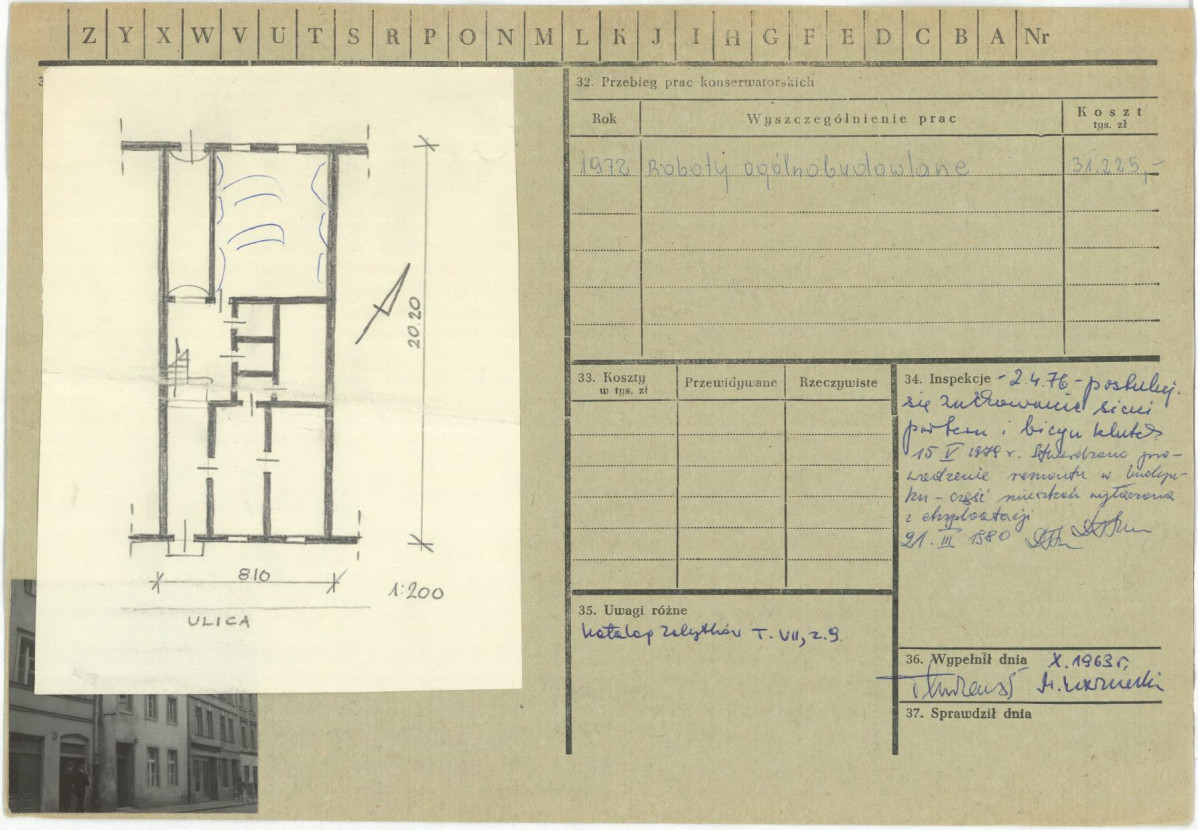 Z Y X W V U T S R P O N M L K J I H G F E D C B A Nr
3
20.20
8.10
1:200
ULICA
32. Przebieg prac konserwatorskich
Rok Wyszczególnienie prac Koszt
tys. zł
1972 Roboty ogólnobudowlane 31.225,-
33. Koszty
w tys. zł
Przewidywane Rzeczywiste
34. Inspekcje - 2.4.76 - postuluj.
się zachowanie sieni
parteru i
15 V 1979 r. Stwierdzono pro-
wadzenie remontu w budyn-
ku - część mieszkań wyłączona
z eksploatacji
21. III 1980
35. Uwagi różne
Katalog Zabytków T. VII, z. 9.
36. Wypełnił dnia X. 1963 r.
37. Sprawdził dnia